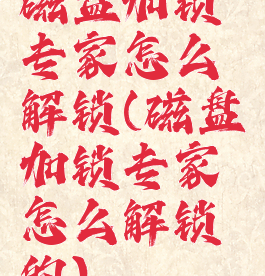 磁盘加锁
专家怎么
解锁(磁盘
加锁专家
怎么解锁
的)